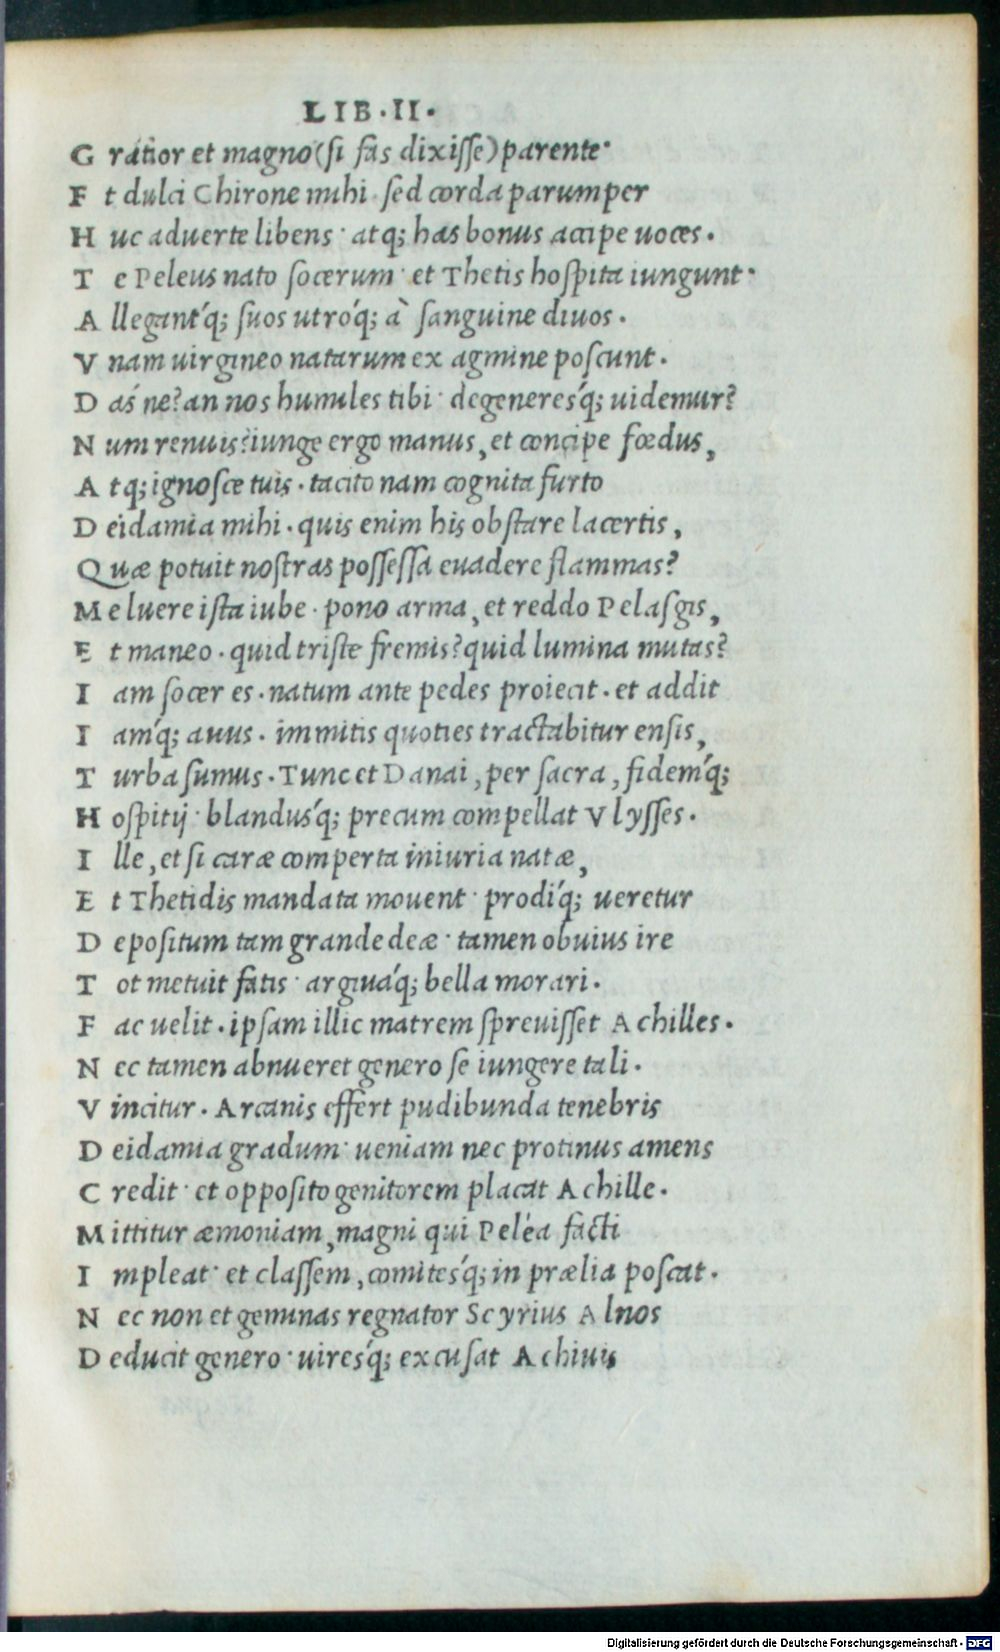 LIB.II.
G ratior et magno (si fas dixisse) parente·
F t dulci Chirone mihi· sed corda parumper
H uc aduerte libens· atq; has bonus accipe uoces.
T e Peleus nato socerum· et Thetis hospita iungunt·
A llegant'q; suos utró'q; à sanguine diuos.
V nam uirgineo natarum ex agmine poscunt.
D as' ne? an nos humiles tibi· degeneres'q; uidemur?
N um renuis? iunge ergo manus, et concipe fœdus,
A tq; ignosce tuis. tacito nam cognita furto
D eidamia mihi. quis enim his obstare lacertis,
Q uæ potuit nostras possessa euadere flammas?
M e luere ista iube· pono arma, et reddo Pelasgis,
E t maneo. quid triste fremis? quid lumina mutas?
I am socer es. natum ante pedes proiecit. et addit
I am'q; auus. immitis quoties tractabitur ensis,
T urba sumus. Tunc et Danai, per sacra, fidem'q;
H ospitij· blandus'q; precum compellat Vlysses.
I lle, et si caræ comperta iniuria natæ,
E t Thetidis mandata mouent· prodi'q; ueretur
D epositum tam grande deæ· tamen obuius ire
T ot metuit fatis· arguiá'q; bella morari.
F ac uelit. ipsam illic matrem spreuisset Achilles.
N ec tamen abnueret genero se iungere tali.
V incitur. Arcanis effert pudibunda tenebris
D eidamia gradum· ueniam nec protinus amens
C redit· et opposito genitorem placat Achille.
M ittitur æmoniam, magni qui Peléa facti
I mpleat· et classem, comites'q; in prælia poscat.
N ec non et geminas regnator Scyrius Alnos
D educit genero· uires'q; excusat Achiuis
Digitalisierung gefördert durch die Deutsche Forschungsgemeinschaft - DFG